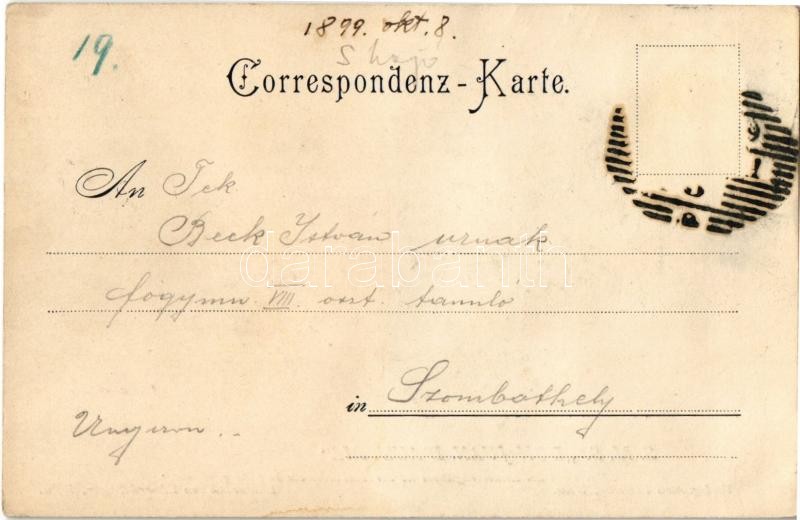 1899. okt. 8.
19.
Correspondenz-Karte.
An Tek
Beck István urnak
főgymn. VIII. oszt. tanuló
in Szombathely
Ungarn.
darabanth.com